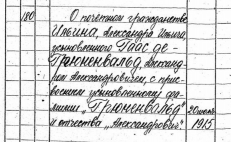 180 О почетном гражданстве
Ильина, Александра Ильича,
усыновленного Гаас де-
Грюненвальд, Александ-
ром Александровичем, с прис-
воением усыновленному фа-
милии "Грюненвальд" 20 июля
и отчества "Александрович". 1915